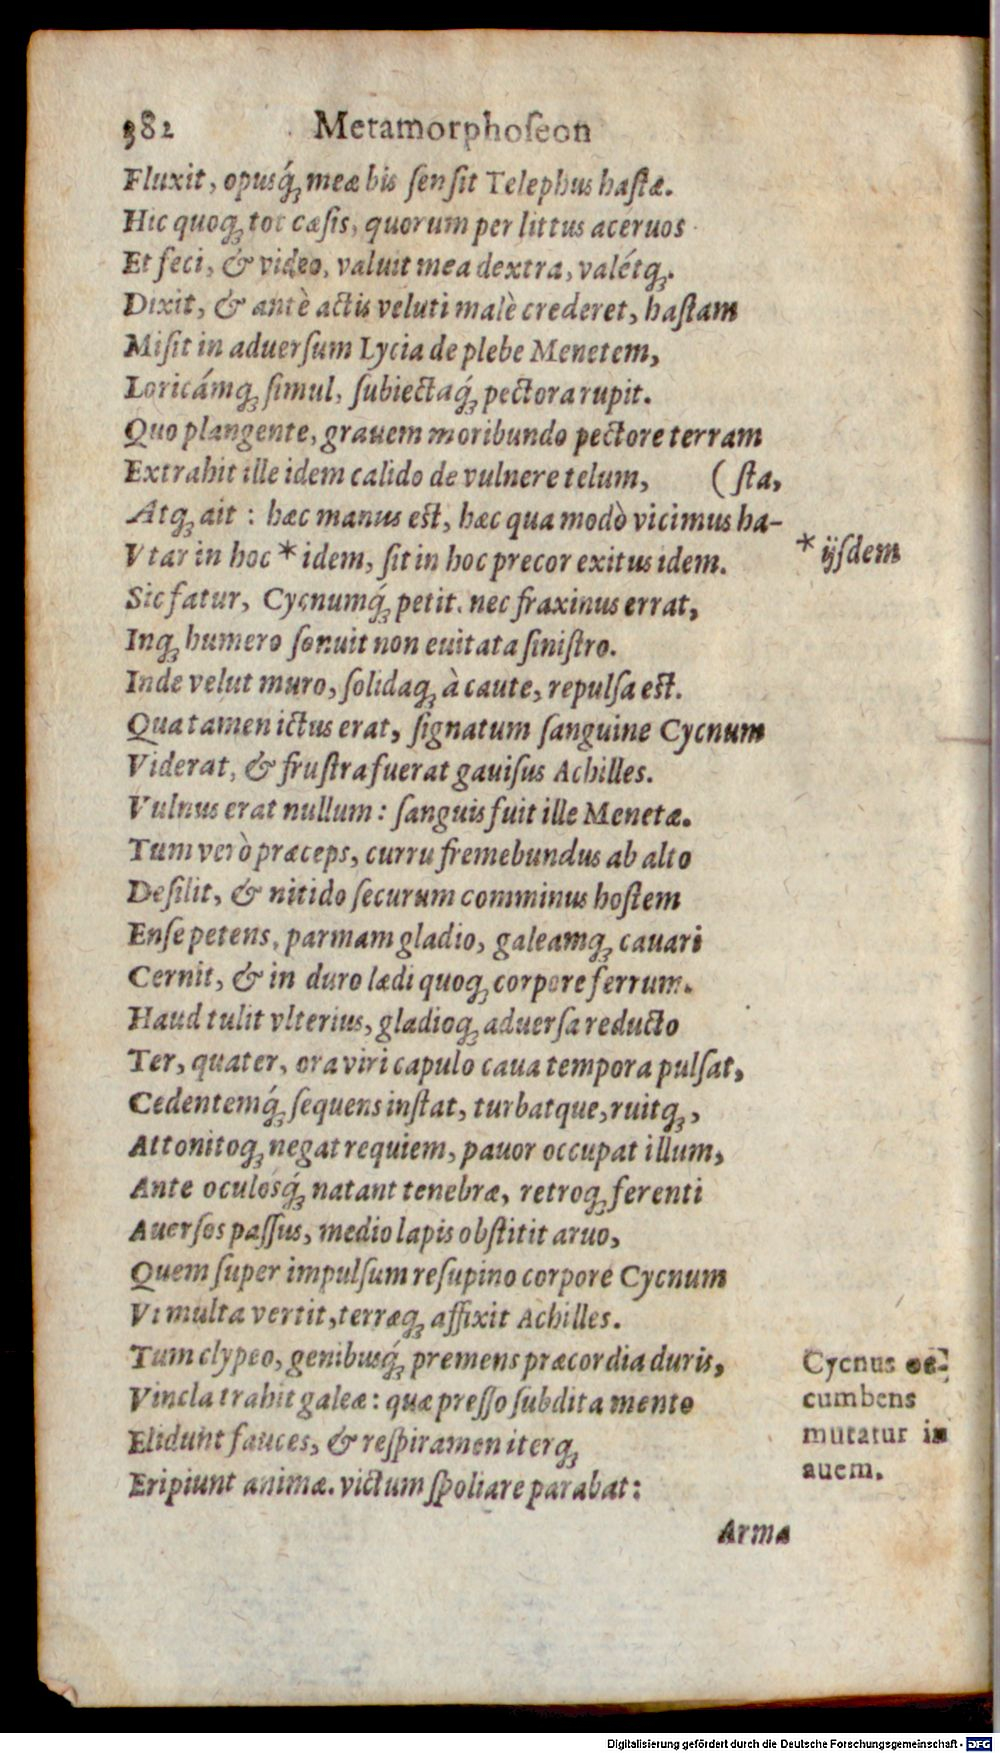 382 Metamorphoſeon
Fluxit, opusq́ꝫ meæ bis ſenſit Telephus haſtæ.
Hic quoqꝫ tot cæſis, quorum per littus aceruos
Et feci, & video, valuit mea dextra, valétqꝫ.
Dixit, & antè actis veluti malè crederet, haſtam
Miſit in aduerſum Lycia de plebe Menetem,
Loricámqꝫ ſimul, ſubiectaq́ꝫ pectora rupit.
Quo plangente, grauem moribundo pectore terram
Extrahit ille idem calido de vulnere telum, (ſta,
Atqꝫ ait : hæc manus eſt, hæc qua modò vicimus ha-
Vtar in hoc * idem, ſit in hoc precor exitus idem.
* ijſdem
Sic fatur, Cycnumq́ꝫ petit. nec fraxinus errat,
Inqꝫ humero ſonuit non euitata ſiniſtro.
Inde velut muro, ſolidaqꝫ à caute, repulſa eſt.
Qua tamen ictus erat, ſignatum ſanguine Cycnum
Viderat, & fruſtra fuerat gauiſus Achilles.
Vulnus erat nullum : ſanguis fuit ille Menetæ.
Tum verò præceps, curru fremebundus ab alto
Deſilit, & nitido ſecurum comminus hoſtem
Enſe petens, parmam gladio, galeamqꝫ cauari
Cernit, & in duro lædi quoqꝫ corpore ferrum.
Haud tulit vlterius, gladioqꝫ aduerſa reducto
Ter, quater, ora viri capulo caua tempora pulſat,
Cedentemq́ꝫ ſequens inſtat, turbatque, ruitqꝫ,
Attonitoqꝫ negat requiem, pauor occupat illum,
Ante oculosq́ꝫ natant tenebræ, retroqꝫ ferenti
Auerſos paſſus, medio lapis obſtitit aruo,
Quem ſuper impulſum reſupino corpore Cycnum
Vi multa vertit, terræqꝫ affixit Achilles.
Tum clypeo, genibusq́ꝫ premens præcordia duris,
Vincla trahit galeæ : quæ preſſo ſubdita mento
Elidunt fauces, & reſpiramen iterqꝫ
Eripiunt animæ. victum ſpoliare parabat :
Cycnus oc-
cumbens
mutatur in
auem.
Arma
Digitalisierung gefördert durch die Deutsche Forschungsgemeinschaft - DFG